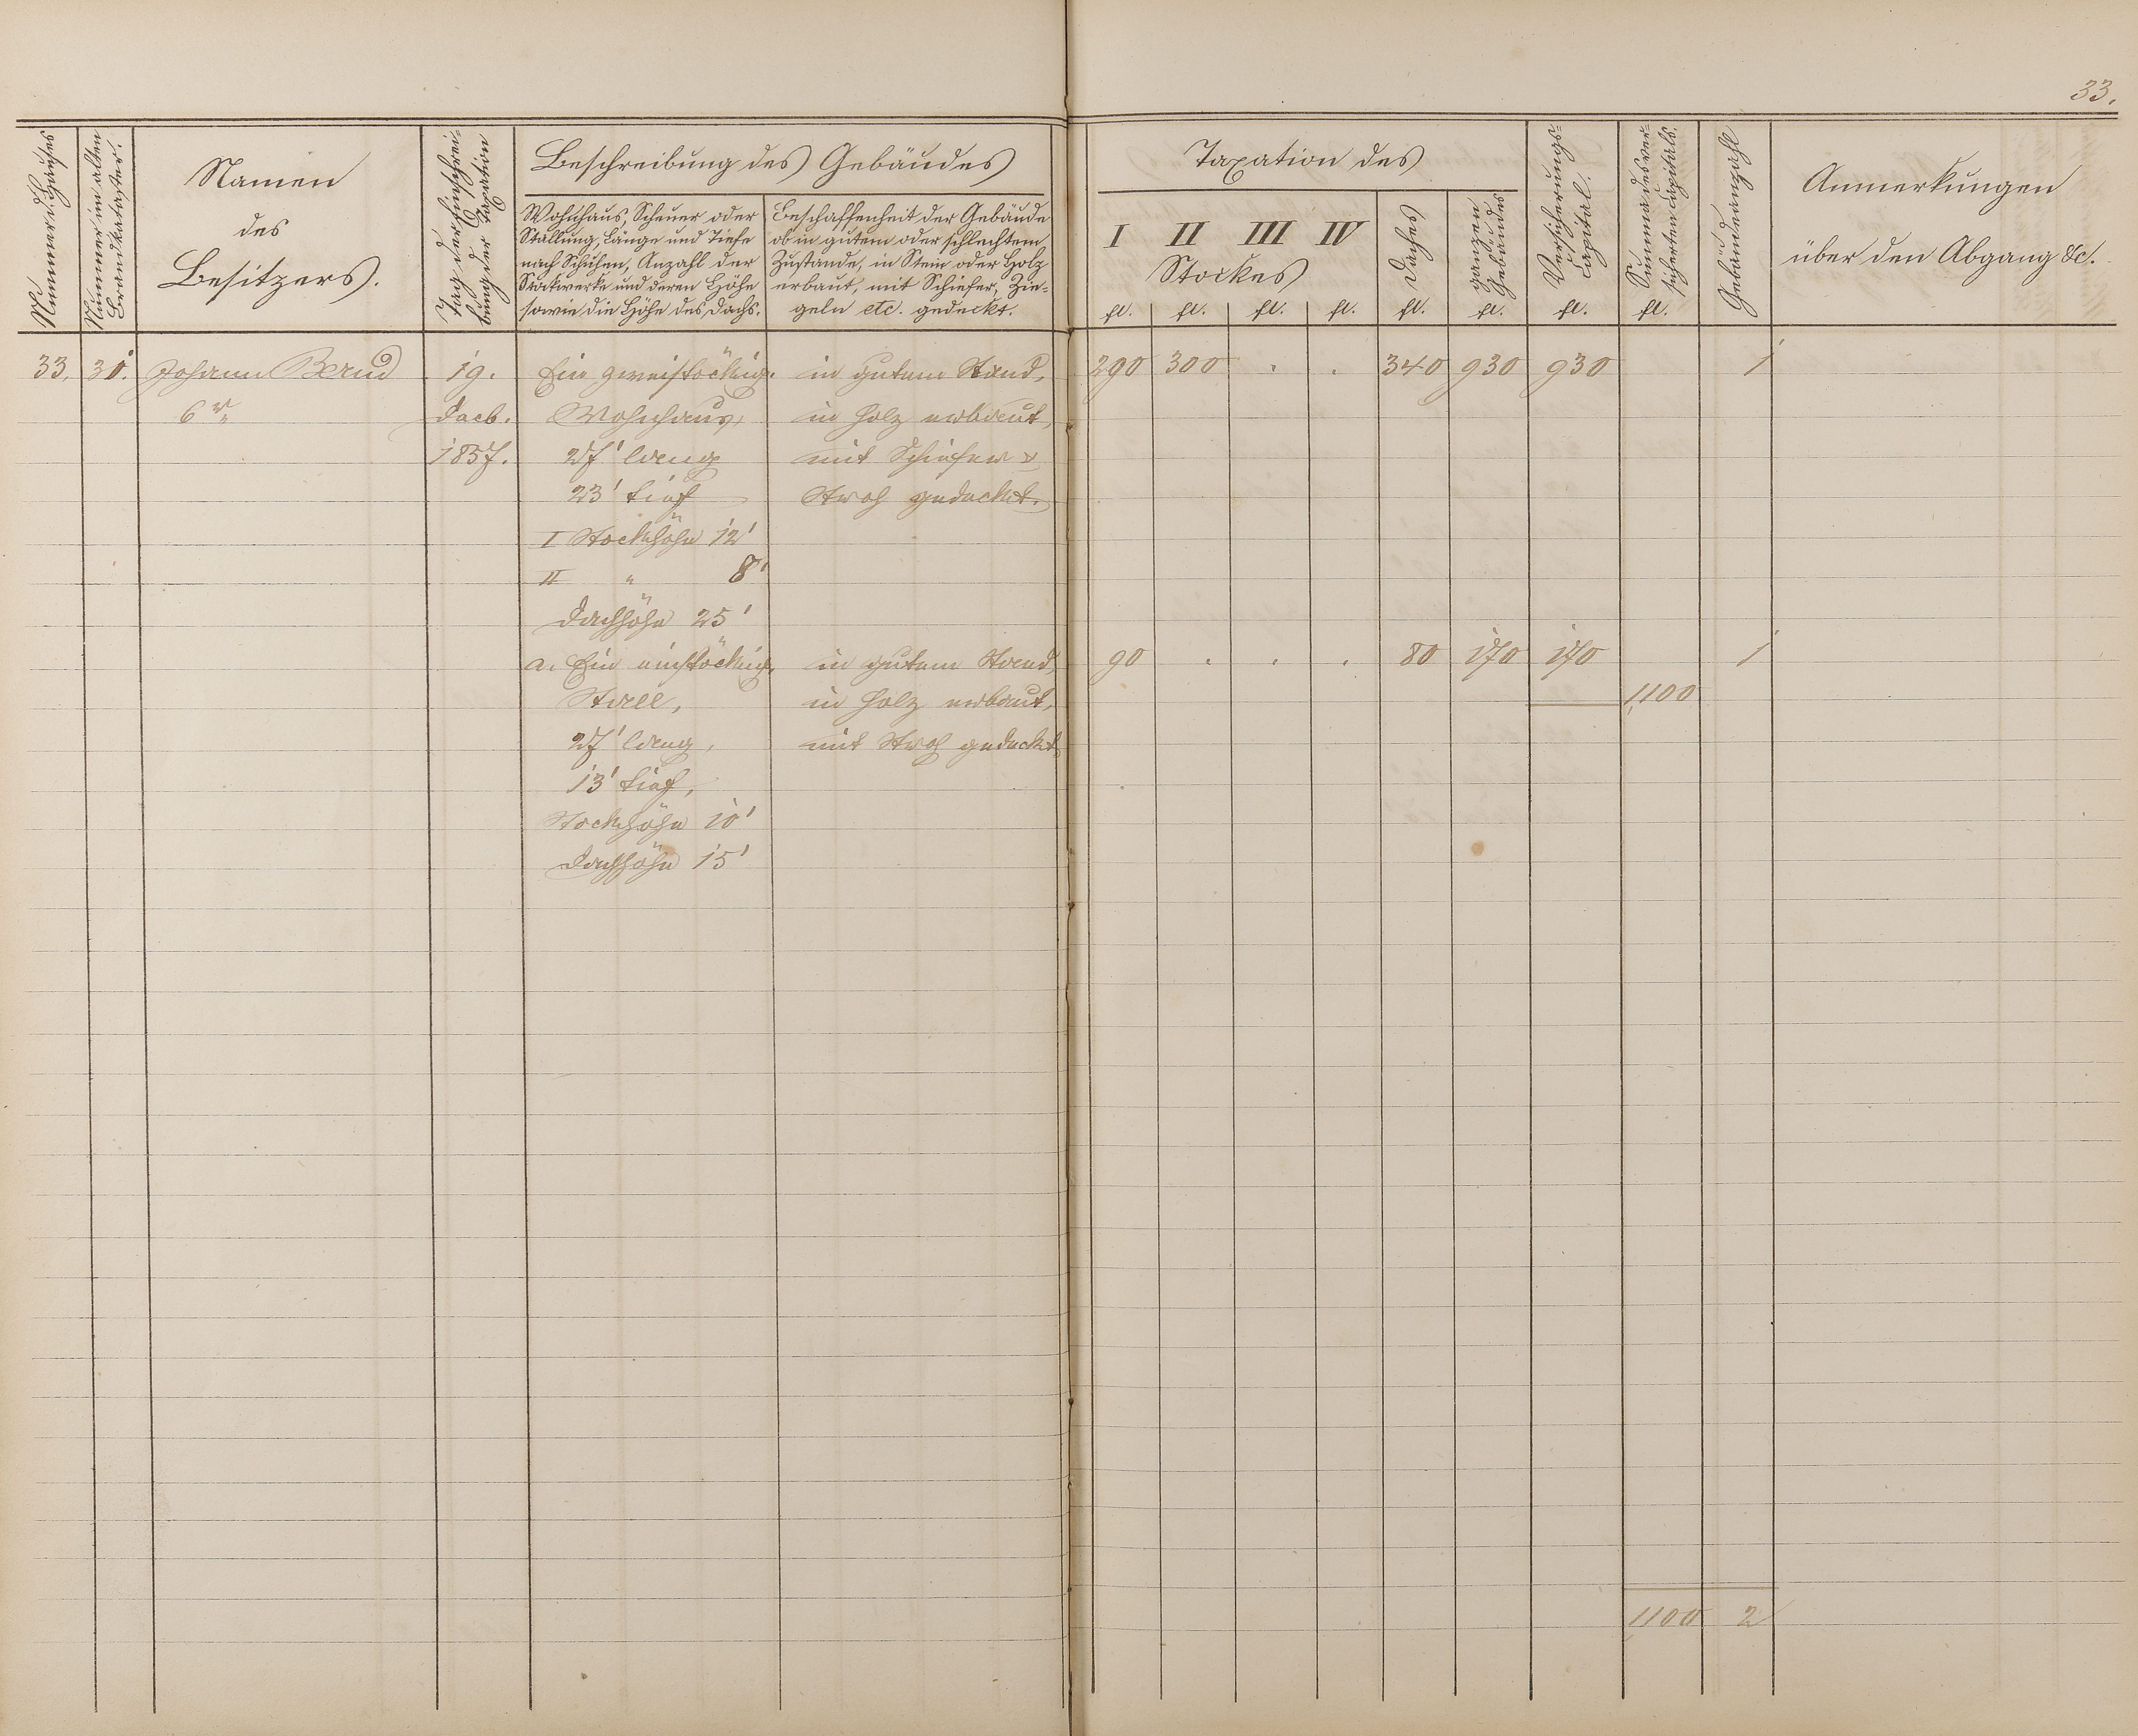 33.
Nummer d. Hauses
Nummer im alten Brandkataster.
Namen
des
Besitzers.
Tag der Einschrei-
bung der Taxation
Beschreibung des Gebäudes
Wohnhaus, Scheuer oder
Stallung, Länge und Tiefe
nach Schuhen, Anzahl der
Stockwerke und deren Höhe
sowie die Höhe des Dachs.
Beschaffenheit der Gebäude
ob in gutem oder schlechtem
Zustande, in Stein oder Holz
erbaut, mit Schiefer, Zie-
geln etc. gedeckt.
Taxation des
I II III IV
Stockes
Daches
ganzen
Gebäudes
Versicherungs-
Capital.
Summa des ver-
sicherten Capitals.
Gebäudeanzahl
Anmerkungen
über den Abgang &c.
fl. fl. fl. fl. fl. fl. fl. fl.
33. 31. Johann Bernd 19. Ein zweistöckig. in gutem Stand, 290 300 . . 340 930 930 1
6r " Dacb. Wohnhaus, in Holz erbaut,
1857. 27' lang mit Schiefer u
23' tief Stroh gedeckt.
I Stockhöhe 12'
II " 8'
Dachhöhe 25'
a. Ein einstöckig. in gutem Stand, 90 . . . 80 170 170 1
Stall, in Holz erbaut, 1100
27' lang, mit Stroh gedeckt,
13' tief,
Stockhöhe 10'
Dachhöhe 15'
1100 2